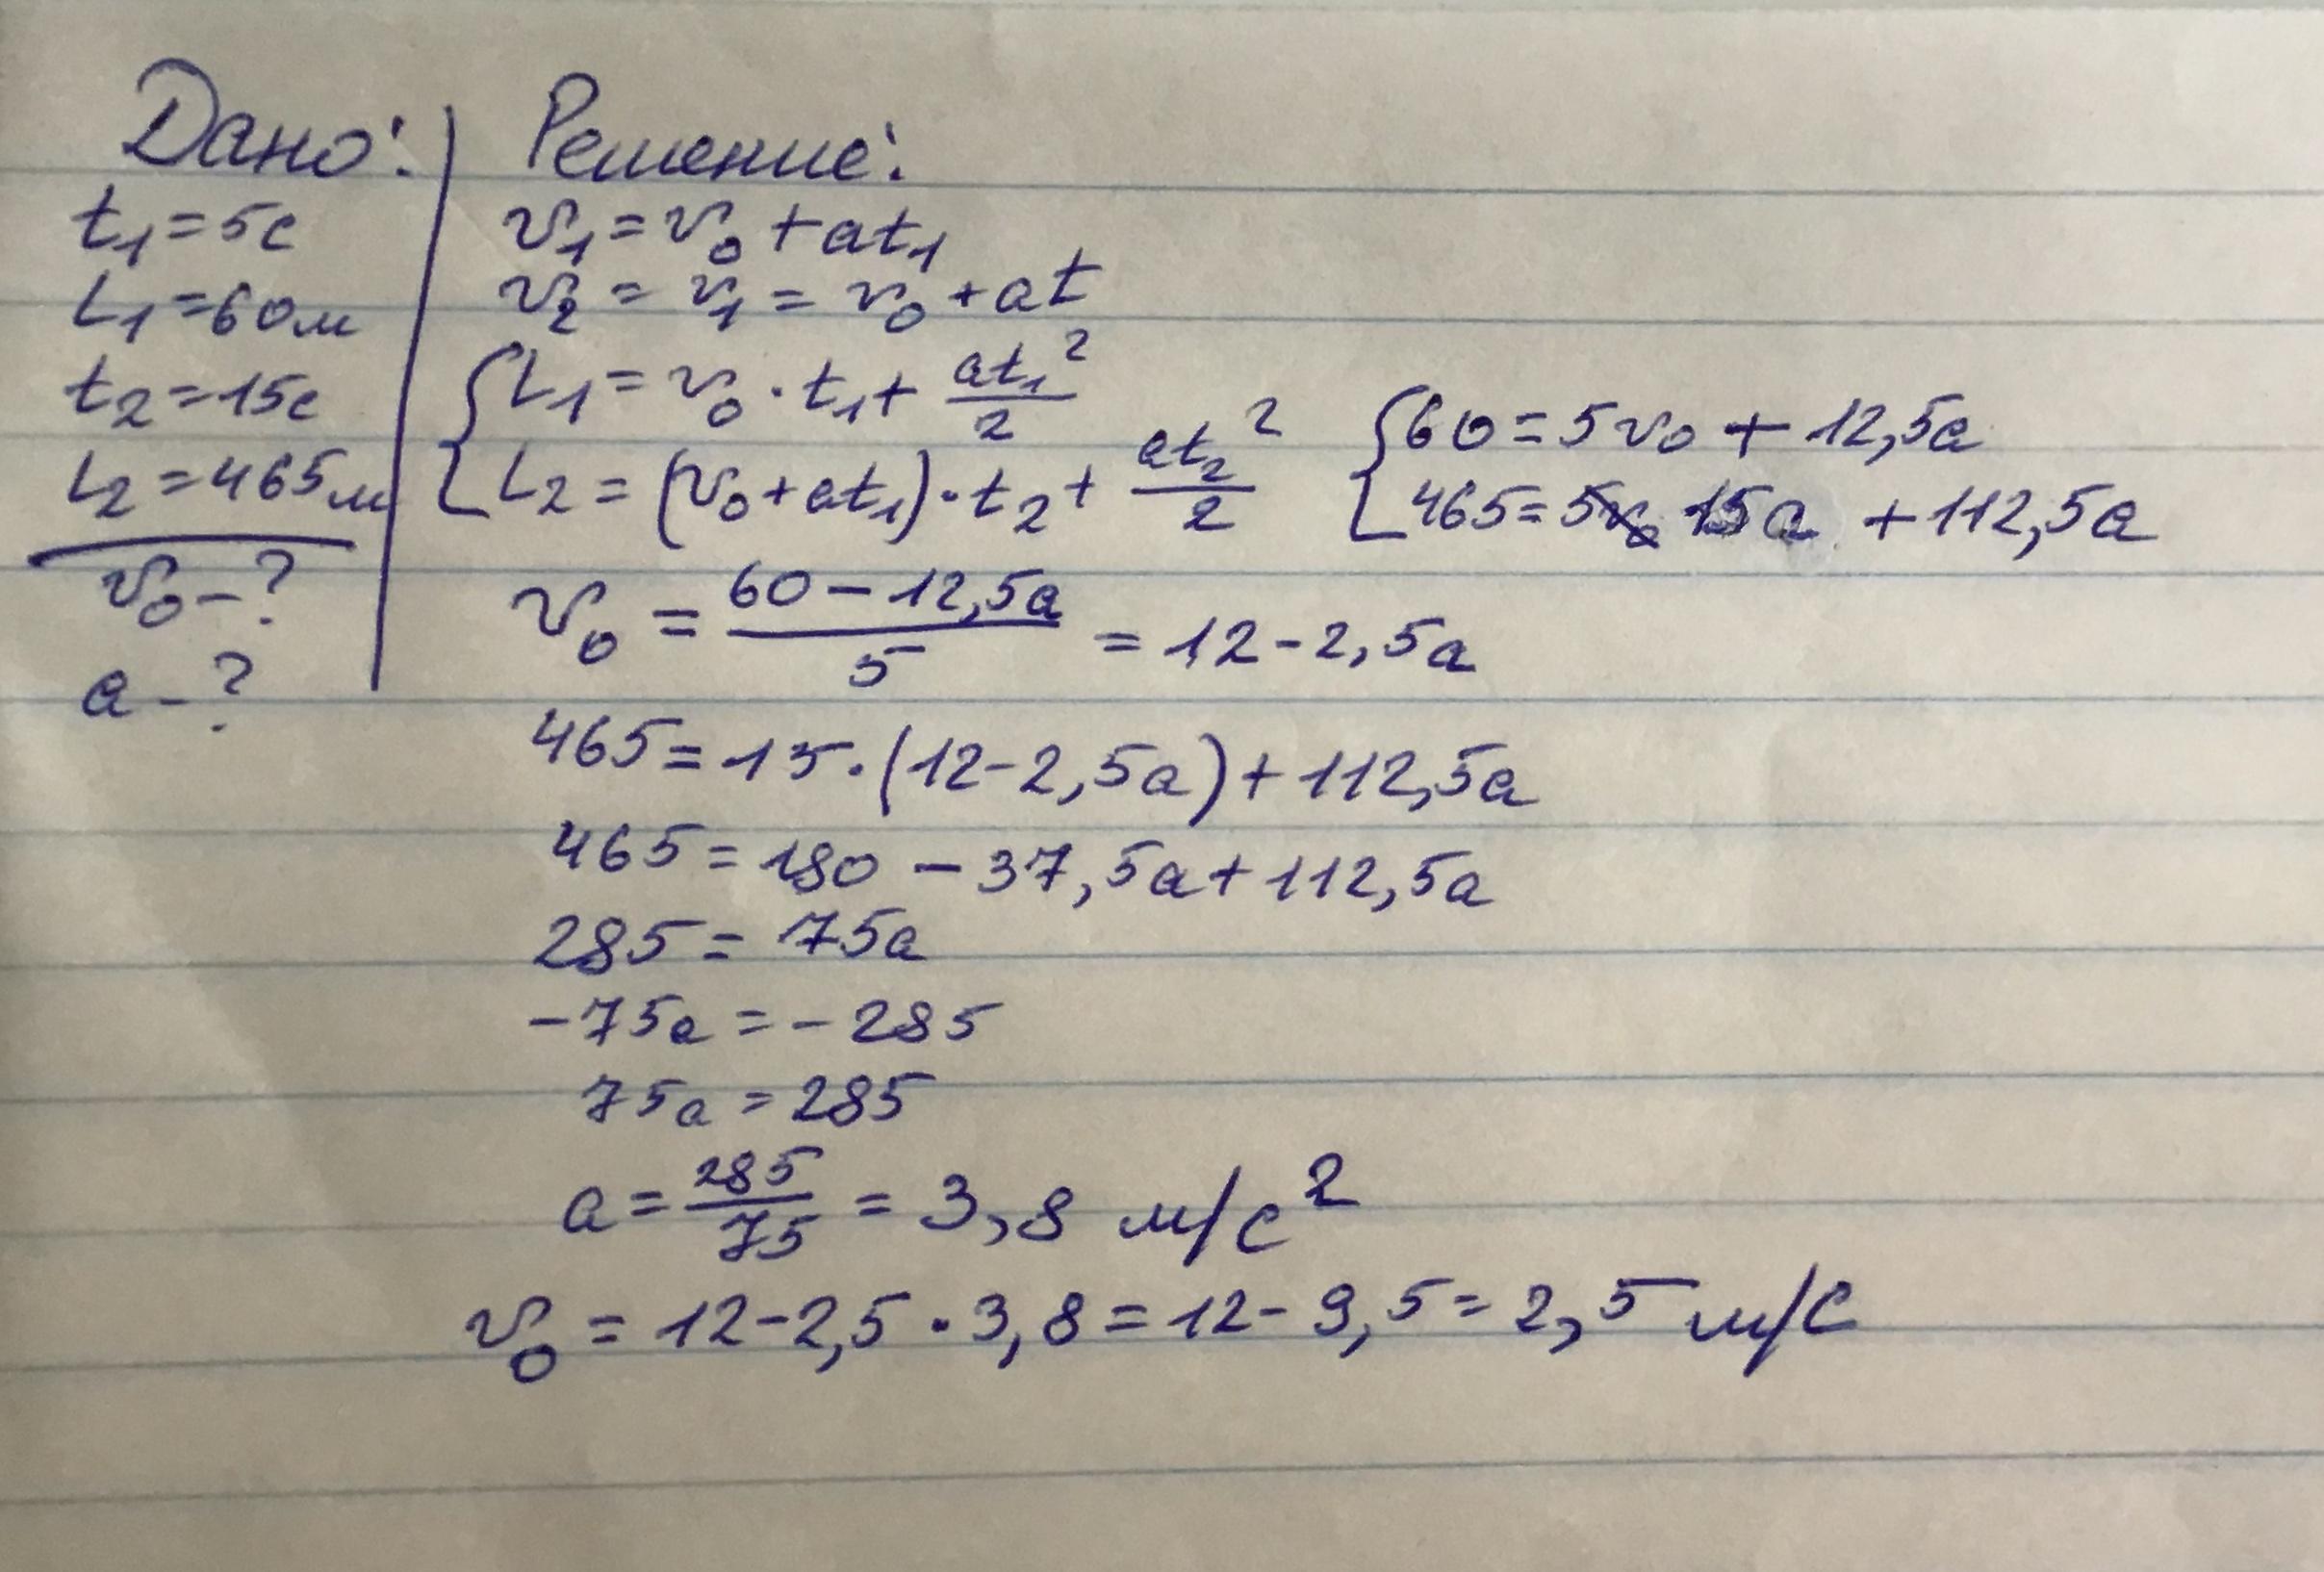 Дано:
t₁=5с
L₁=60м
t₂=15с
L₂=465м
v₀-?
a-?
Решение:
v₁=v₀+at₁
v₂=v₁=v₀+at
{L₁=v₀·t₁+at₁²/2
{L₂=(v₀+at₁)·t₂+at₂²/2
{60=5v₀+12,5a
{465=15a+112,5a
v₀=60-12,5a/5=12-2,5a
465=15·(12-2,5a)+112,5a
465=180-37,5a+112,5a
285=75a
-75a=-285
75a=285
a=285/75=3,8 м/с²
v₀=12-2,5·3,8=12-9,5=2,5м/с